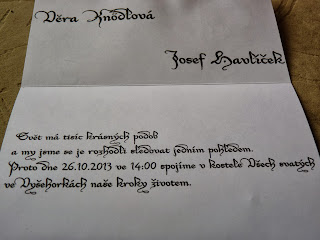 Věra Knödlová
Josef Havlíček
Svět má tisíc krásných podob
a my jsme se je rozhodli sledovat jedním pohledem.
Proto dne 26.10.2013 ve 14:00 spojíme v kostele Všech svatých
ve Vyšehorkách naše kroky životem.